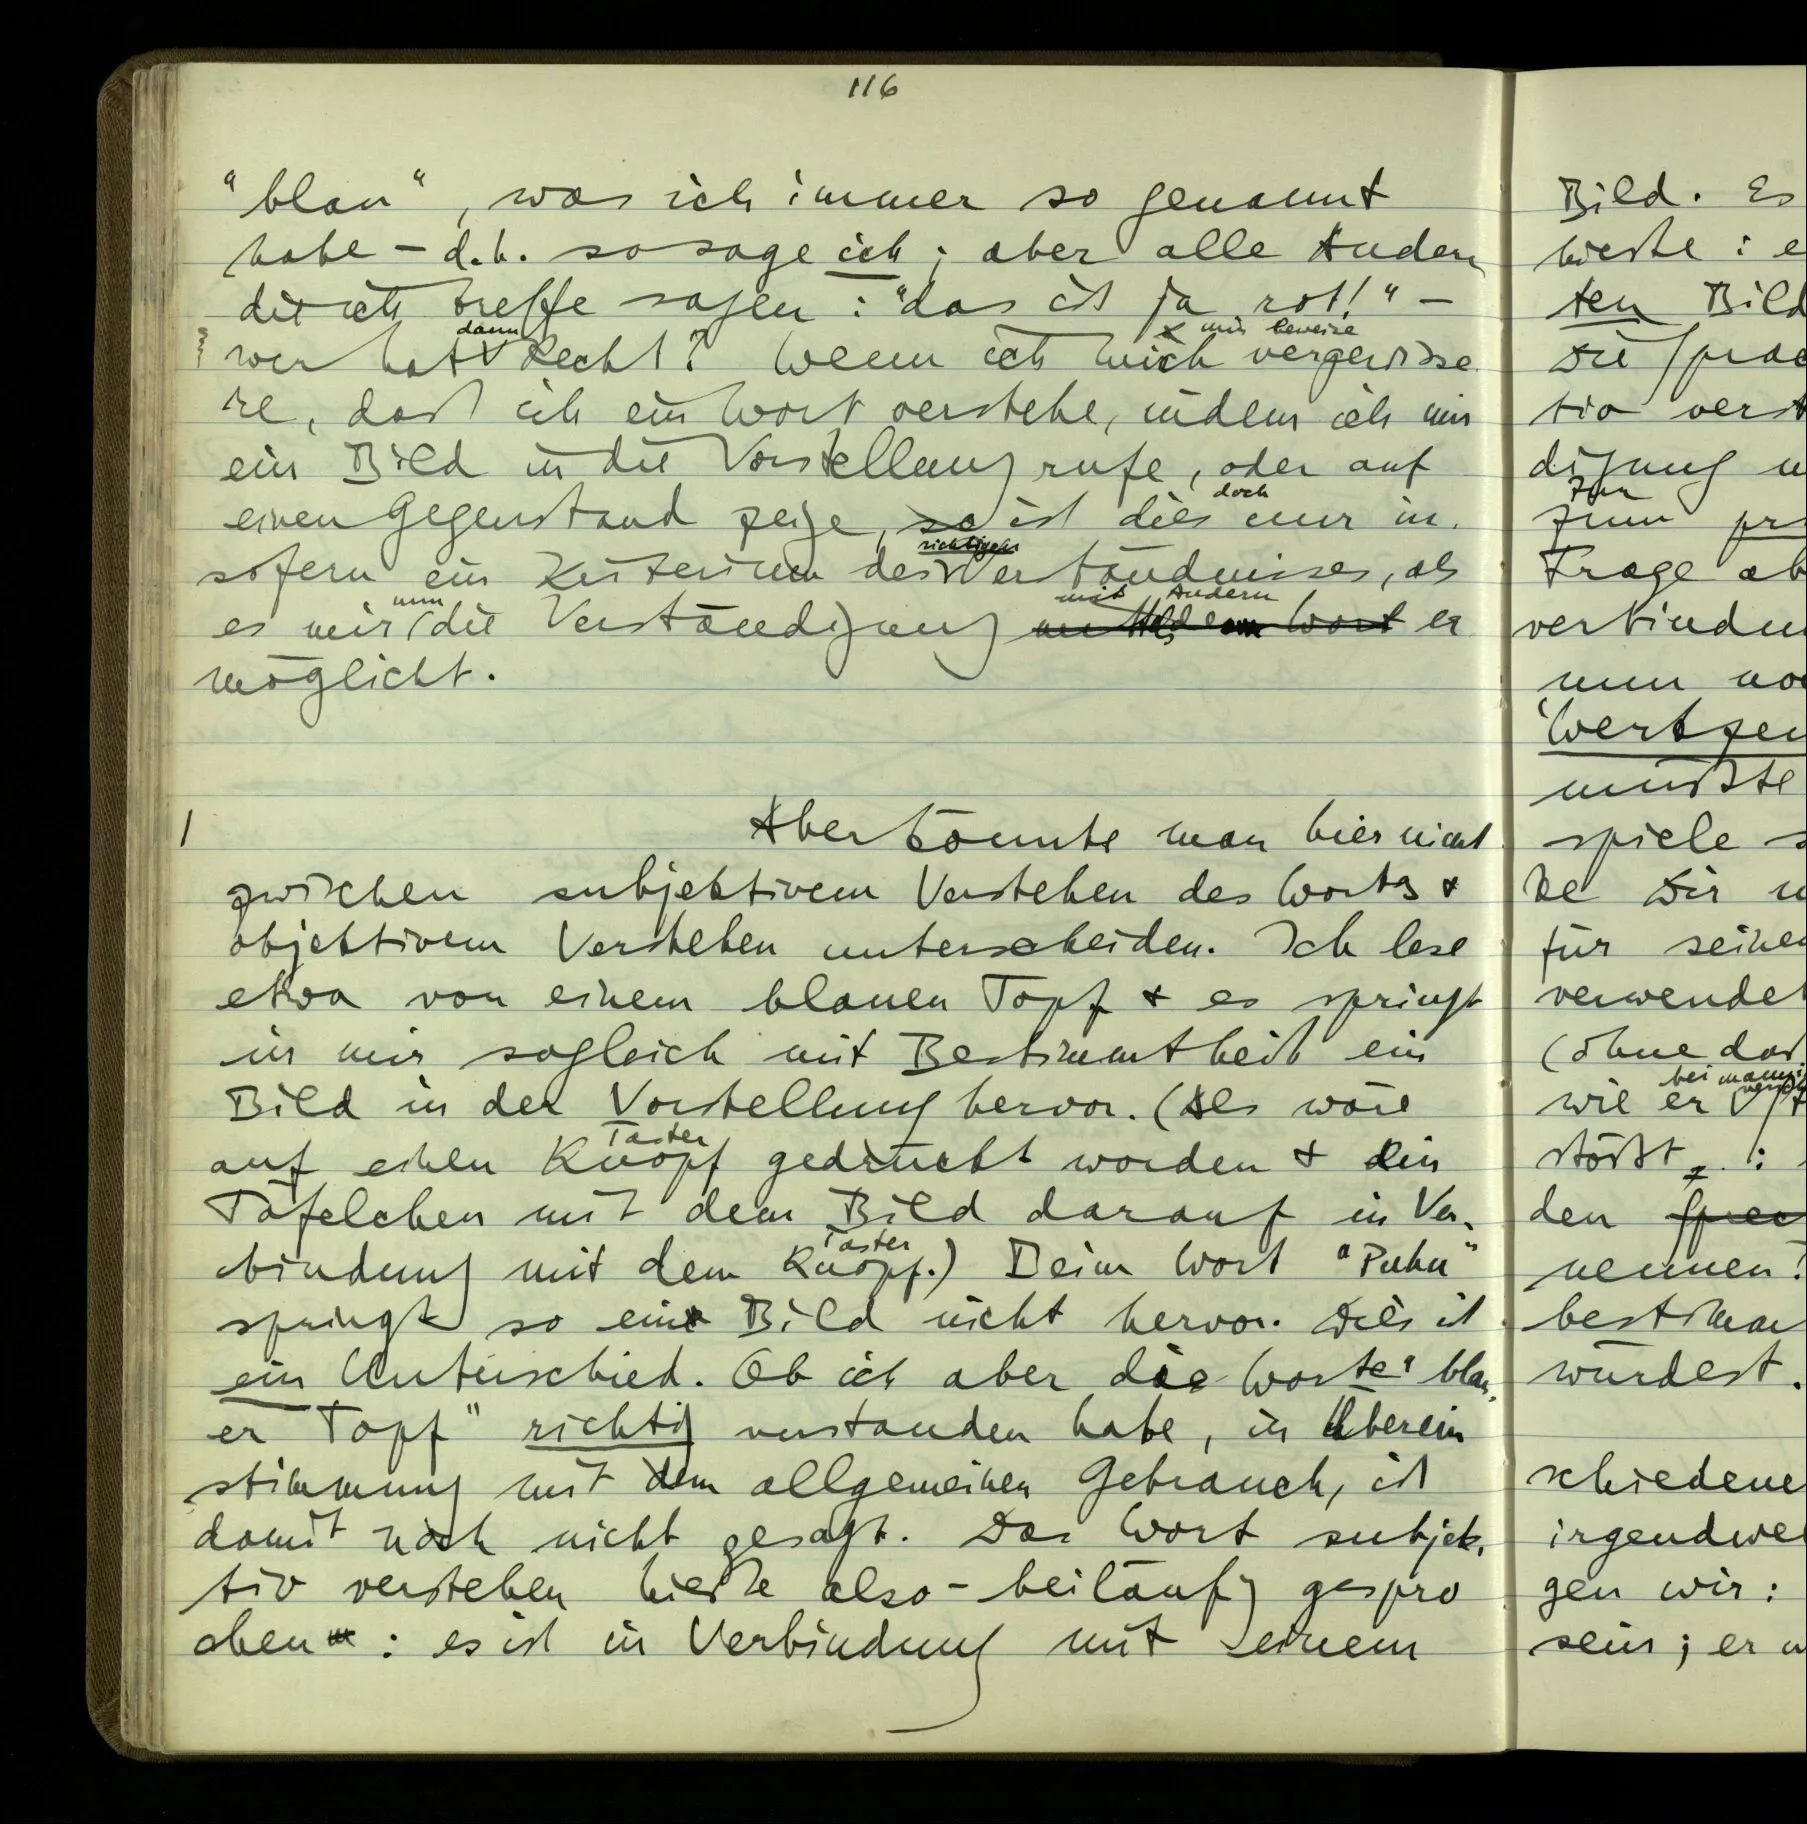 116
"blau", was ich immer so genannt
habe – d.h. so sage ich; aber alle Andern
die ich treffe sagen: "das ist ja rot!" –
dann
x mir beweise
wer hat Recht? Wenn ich mich vergewisse
re, daß ich ein Wort verstehe, indem ich mir
ein Bild in die Vorstellung rufe, oder auf
doch
einen Gegenstand zeige, so ist dies nur in
richtigen
sofern ein Kriterium des Verständnisses, als
nun
mit Andern
es mir die Verständigung Wort er
möglicht.
1
Aber könnte man hier nicht
zwischen subjektivem Verstehen des Worts &
objektivem Verstehen unterscheiden. Ich lese
etwa von einem blauen Topf & es springt
in mir sogleich mit Bestimmtheit ein
Bild in der Vorstellung hervor. (Als wäre
Taster
auf einen Knopf gedrückt worden & ein
Täfelchen mit dem Bild darauf in Ver-
Taster
bindung mit dem Knopf.) Beim Wort "Puhu"
springt so ein Bild nicht hervor. Dies ist
ein Unterschied. Ob ich aber die Worte "blau-
er Topf" richtig verstanden habe, in Überein
stimmung mit dem allgemeinen Gebrauch, ist
damit noch nicht gesagt. Das Wort subjek-
tiv verstehen hieße also – beiläufig gespro
chen : es ist in Verbindung mit einem
Bild. Es
hieße : e
ten Bild
Die Sprac
tiv verst
digung u
zur
zum pr
Frage ob
verbindun
nun noc
Werkzeu
müßte
spiele s
ke Dir u
für seinen
verwendet
(ohne daß
bei manch
wie er
stößt :
den
nennen?
bestimm
würdest.
schiedene
irgendwel
gen wir:
sein; er w